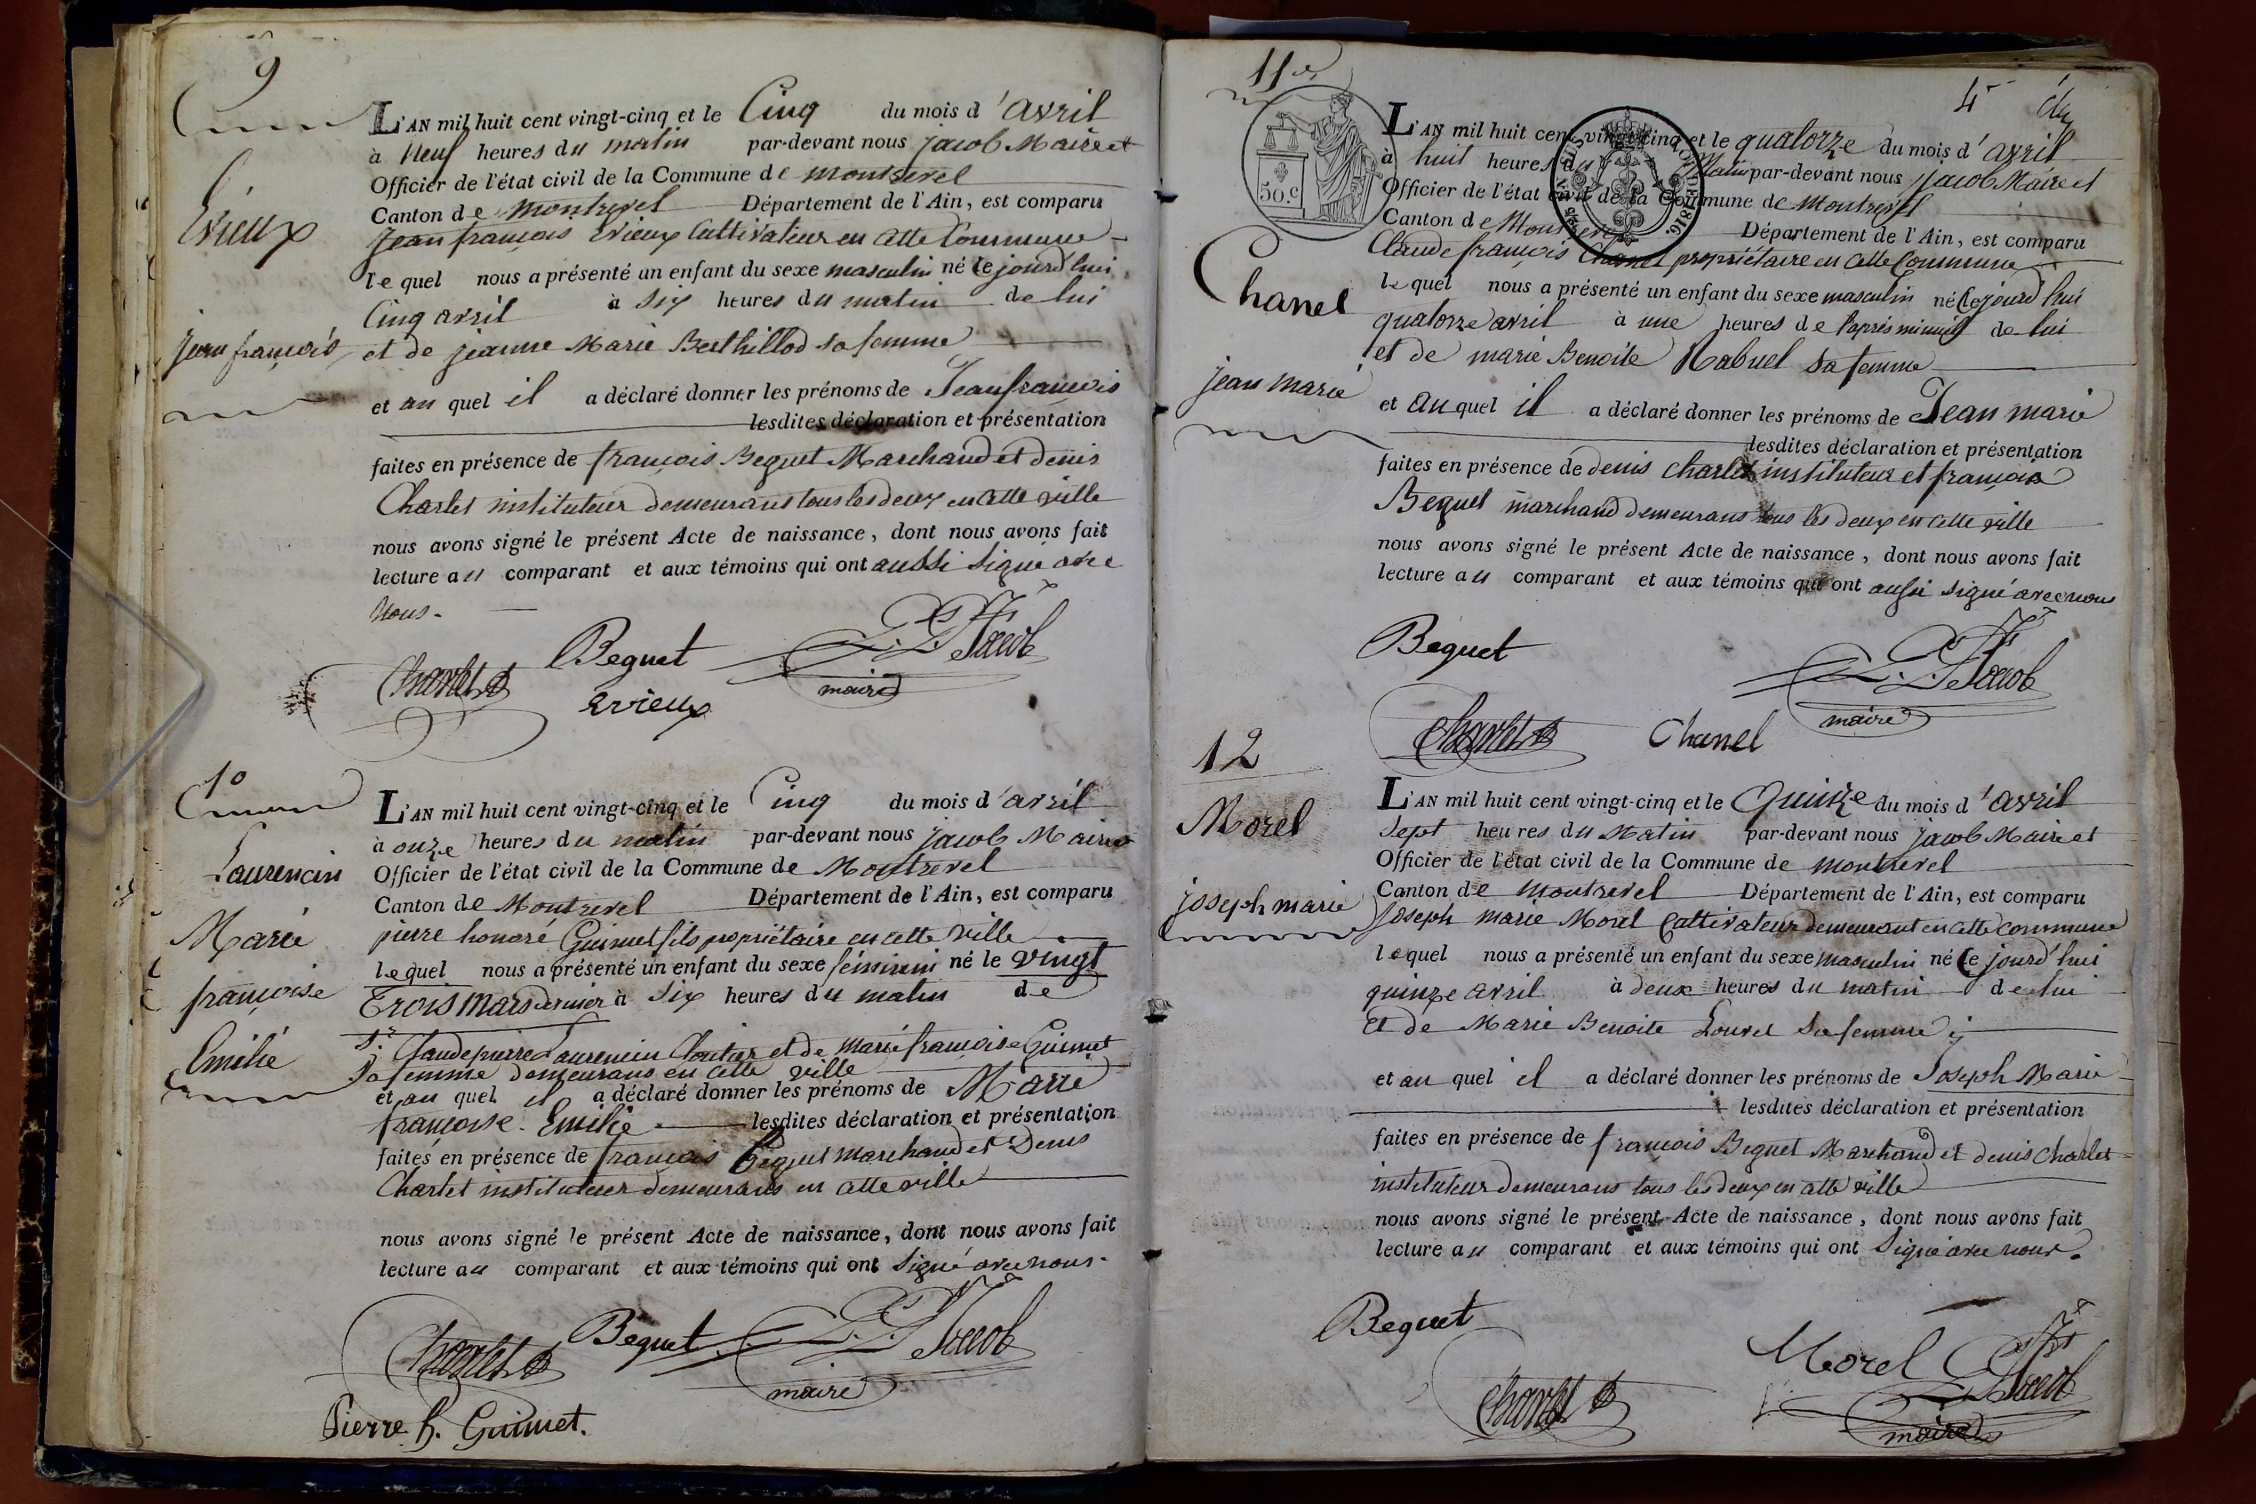 9
L'AN mil huit cent vingt-cinq et le Cinq du mois d'avril
à Neuf heures du matin par-devant nous jacob Maire et
Officier de l'état civil de la Commune de montrevel
Canton de montrevel Département de l'Ain, est comparu
Evieux
jean françois Evieux Cultivateur en Cette Commune
lequel nous a présenté un enfant du sexe masculin né Cejourd'hui
Cinq avril à six heures du matin de lui
jean françois
et de jeanne Marie Berthillod sa femme
et au quel il a déclaré donner les prénoms de Jean francois
lesdites déclaration et présentation
faites en présence de françois Beguet Marchand et denis
Charlet instituteur demeurans tous les deux en cette ville
nous avons signé le présent Acte de naissance, dont nous avons fait
lecture au comparant et aux témoins qui ont aussi signé avec
Nous.
Beguet
Jacob
Charlet
maire
Evieux
10
L'AN mil huit cent vingt-cinq et le Cinq du mois d'avril
à onze heures du matin par-devant nous jacob Maire
Laurencin
Officier de l'état civil de la Commune de Montrevel
Canton de Montrevel Département de l'Ain, est comparu
Marie
pierre honoré Guimet fils propriétaire en cette ville
lequel nous a présenté un enfant du sexe féminin né le vingt
françoise
Trois Mars dernier à six heures du matin de
Sr. Claude pierre Laurencin et de marie françoise Guimet
Emilie
Sa femme demeurans en cette ville
et au quel il a déclaré donner les prénoms de Marie
françoise Emilie lesdites déclaration et présentation
faites en présence de françois Beguet marchand et Denis
Charlet instituteur demeurans en cette ville
nous avons signé le présent Acte de naissance, dont nous avons fait
lecture au comparant et aux témoins qui ont signé avec nous.
Charlet Beguet Jacob
maire
Pierre h. Guimet.
11e
4e
L'AN mil huit cent vingt-cinq et le quatorze du mois d'avril
à huit heures du Matin par-devant nous jacob Maire et
50.c
Officier de l'état civil de la Commune de Montrevel
Canton de Montrevel Département de l'Ain, est comparu
Claude françois Chanel propriétaire en Cette Commune
Chanel
lequel nous a présenté un enfant du sexe masculin né Cejourd'hui
quatorze avril à une heures de l'après minuit de lui
et de marie Benoite Rabuel sa femme
jean marie
et au quel il a déclaré donner les prénoms de Jean marie
lesdites déclaration et présentation
faites en présence de denis Charlet instituteur et françois
Beguet marchand demeurans tous les deux en cette ville
nous avons signé le présent Acte de naissance, dont nous avons fait
lecture au comparant et aux témoins qui ont aussi signé avec nous
Beguet
Jacob
maire
Charlet Chanel
12
L'AN mil huit cent vingt-cinq et le Quinze du mois d'avril
Morel
sept heures du Matin par-devant nous jacob Maire et
Officier de l'état civil de la Commune de montrevel
Canton de montrevel Département de l'Ain, est comparu
joseph marie
Joseph marie Morel Cultivateur demeurant en cette commune
lequel nous a présenté un enfant du sexe masculin né Cejourd'hui
quinze avril à deux heures du matin de lui
et de Marie Benoite Louvet sa femme
et au quel il a déclaré donner les prénoms de Joseph Marie
lesdites déclaration et présentation
faites en présence de françois Beguet Marchand et denis Charlet
instituteur demeurans tous les deux en cette ville
nous avons signé le présent Acte de naissance, dont nous avons fait
lecture au comparant et aux témoins qui ont signé avec nous.
Beguet
Morel Jacob
Charlet
maire